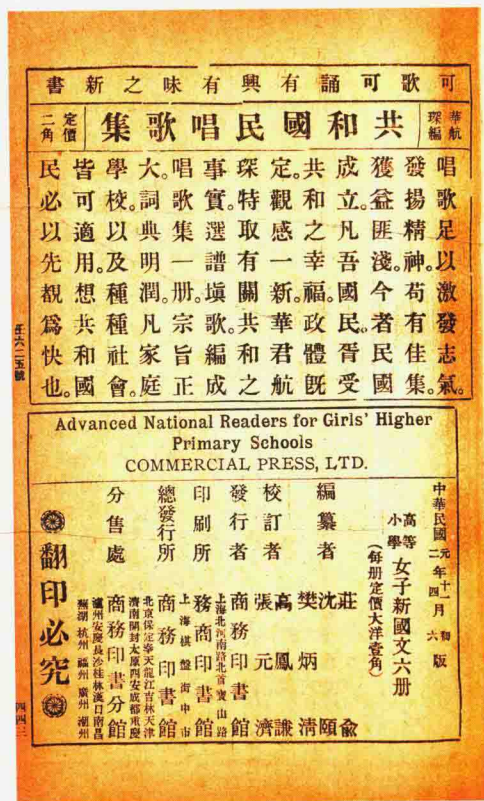 可歌可誦有興有味之新書
華航琛編
共和國民唱歌集
定價二角
唱歌足以激發志氣。
發揚精神。苟有佳集。
獲益匪淺。今者民國
成立。凡吾國民。胥受
共和之幸福。政體既
定。觀感一新。華君航
琛特取有關共和之
事實。選譜塡歌。編成
唱歌集一册。宗旨正
大。詞典明潤。凡家庭
學校。以及種種社會。
皆可適用。想共和國
民必以先覩爲快也。
壬六二五號
Advanced National Readers for Girls' Higher
Primary Schools
COMMERCIAL PRESS, LTD.
中華民國元年十一月初版
二年四月六版
高等小學 女子新國文六册
(每册定價大洋壹角)
編纂者 莊兪 沈頤 樊炳清
校訂者 高鳳謙 張元濟
發行者 商務印書館
上海北河南路北首寶山路
印刷所 商務印書館
上海棋盤街中市
總發行所 商務印書館
北京保定奉天龍江吉林天津
濟南開封太原西安成都重慶
分售處 商務印書分館
瀘州安慶長沙桂林漢口南昌
蕪湖杭州福州廣州潮州
翻印必究
四四三